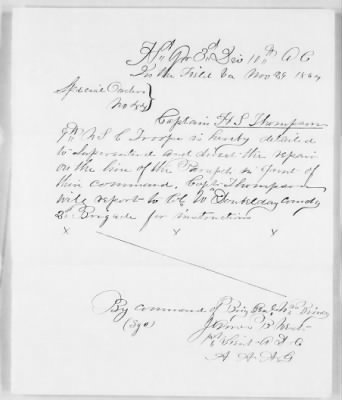 Hd Qrs 3d Div 10th A C
In the Field Va Nov 29 1864
Special Orders
No
Captain H. S. Thompson
9th U S C Troops is hereby detailed
to Superintend and direct the repair
on the line of the Parapet in front of
this command. Capt. Thompson
will report to Col W Doubleday comdg
2d Brigade for instructions
x x x
By command of Brig Gen Wm Birney
(Sgd) James B
1st Lieut A D C
A A A G